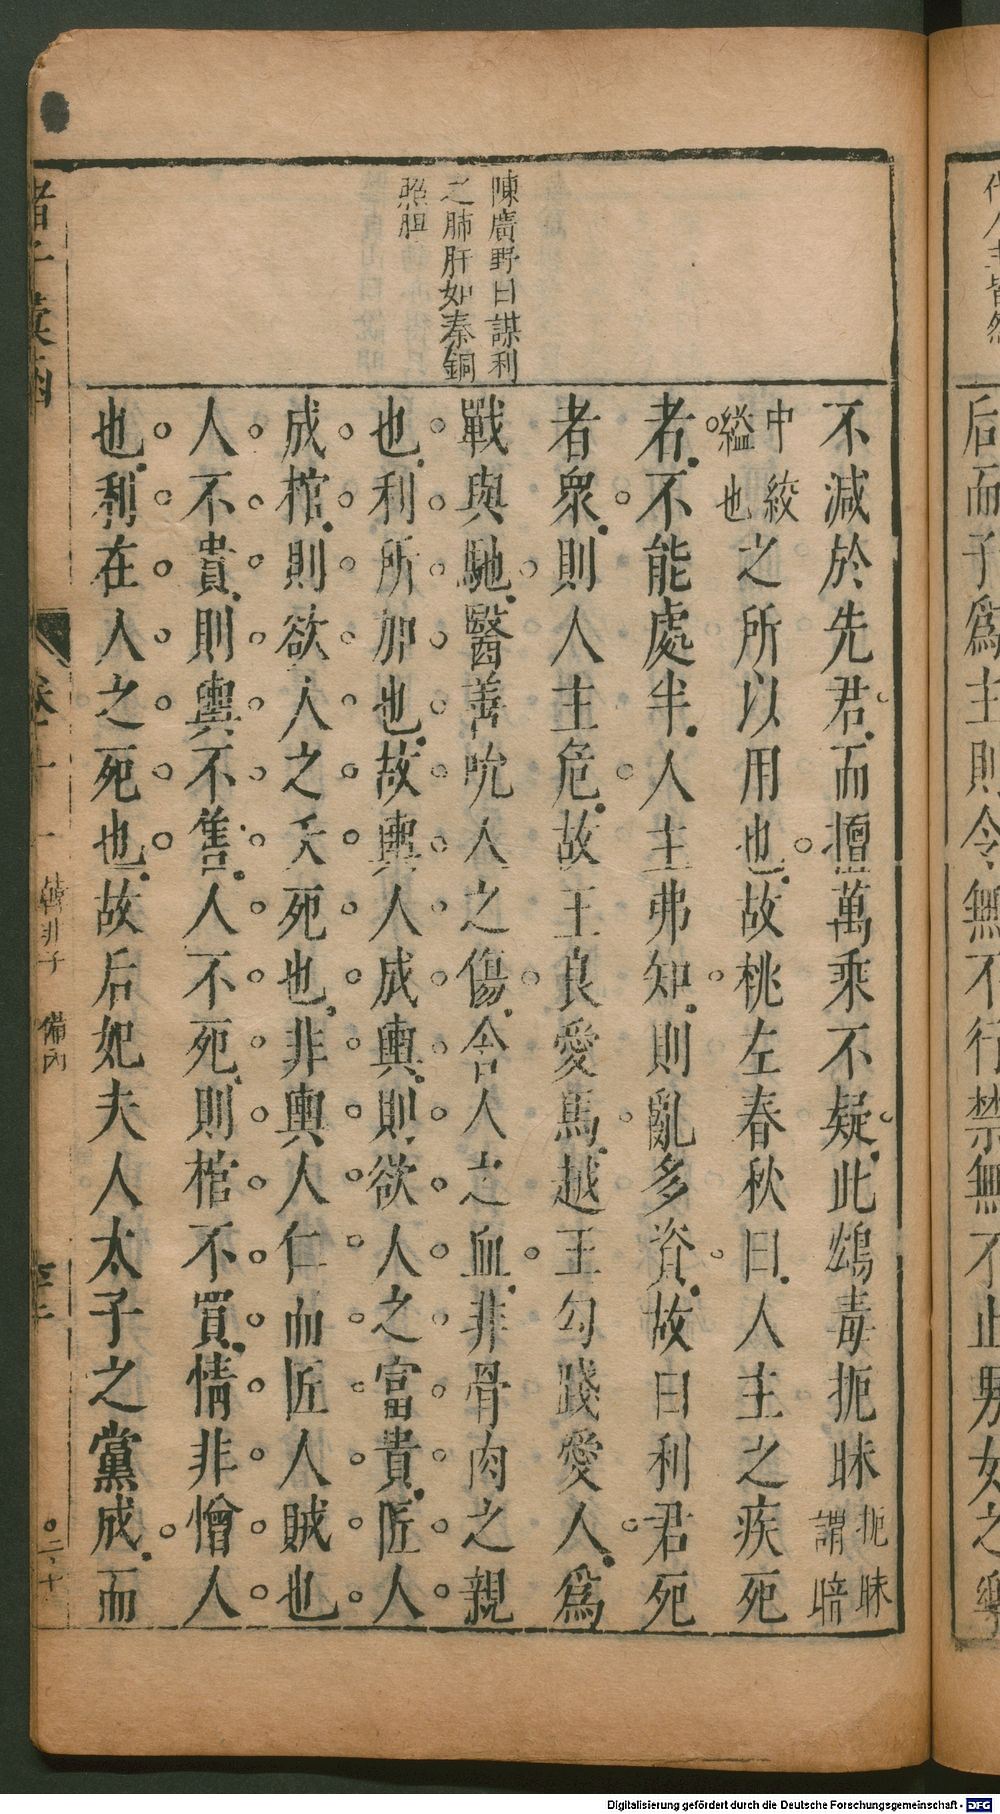 后而子爲主則令無不行禁無不止男女之樂
陳廣野曰謀利
之肺肝如秦銅
照胆
不減於先君而擅萬乘不疑此鴆毒扼昧扼昧
謂暗
中絞
縊也之所以用也故桃左春秋曰人主之疾死
者不能處半人主弗知則亂多資故曰利君死
者衆則人主危故王良愛馬越王勾踐愛人爲
戰與馳醫善吮人之傷含人之血非骨肉之親
也利所加也故輿人成輿則欲人之富貴匠人
成棺則欲人之夭死也非輿人仁而匠人賊也
人不貴則輿不售人不死則棺不買情非憎人
也利在人之死也故后妃夫人太子之黨成而
諸子彙函
韓非子 備內
Digitalisierung gefördert durch die Deutsche Forschungsgemeinschaft - DFG